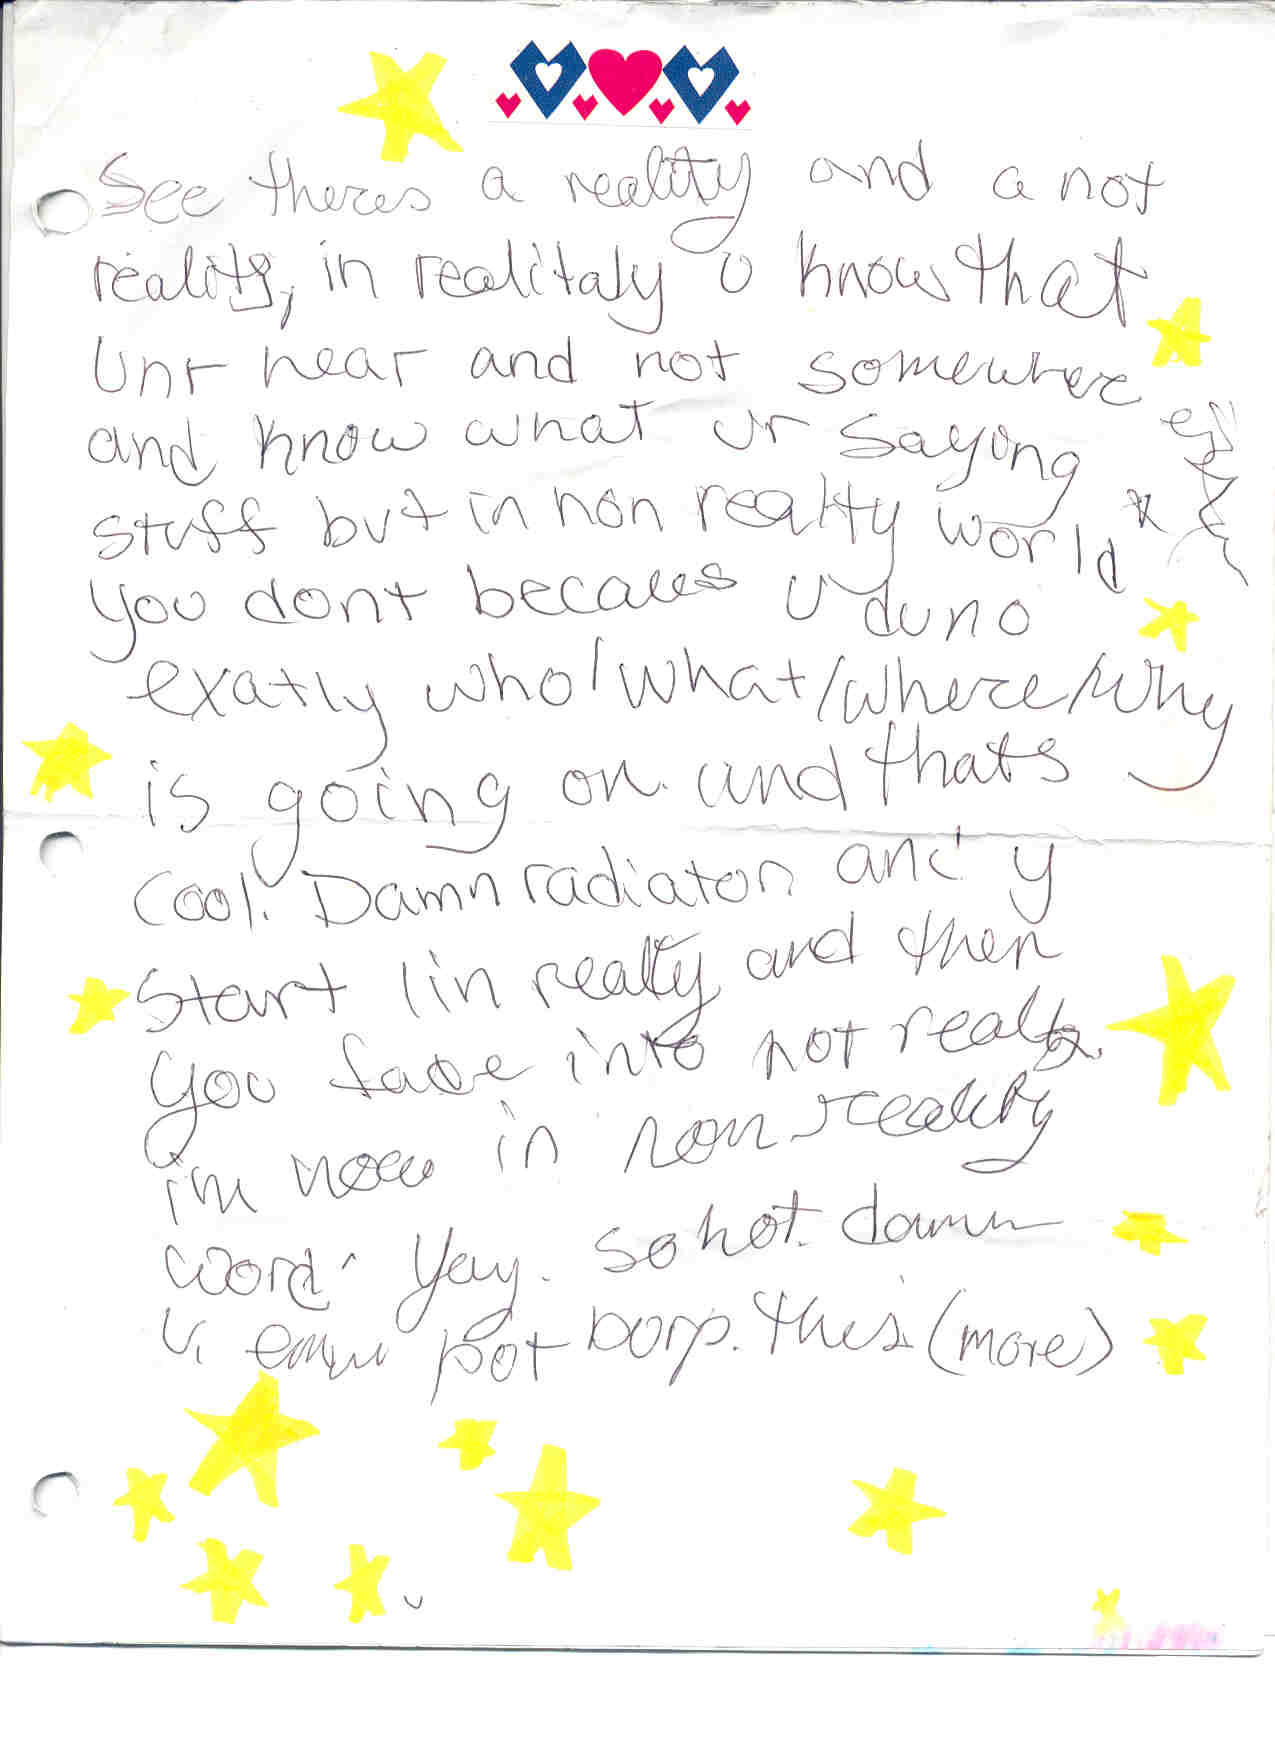 See theres a reality and a not
reality, in realitaly u know that
Unr hear and not somewhere
and know what ur saying
stuff but in non realty world
you dont becaues u duno
exatly who/what/where/why
is going on. and thats
cool. Damn radiaton and y
Start in realty and then
you fade into not realty.
im now in non reality
word. Yay. so hot. damn
pot borp. this (more)